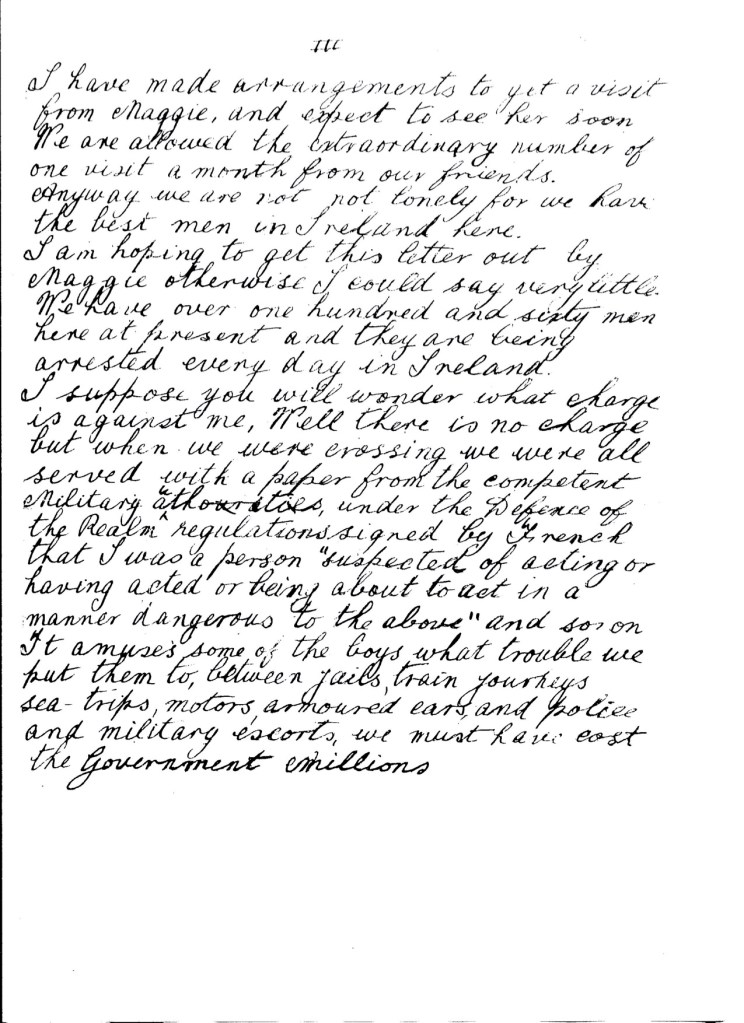 III
I have made arrangements to get a visit
from Maggie, and expect to see her soon
We are allowed the extraordinary number of
one visit a month from our friends.
Anyway we are not not lonely for we have
the best men in Ireland here.
I am hoping to get this letter out by
Maggie otherwise I could say very little.
We have over one hundred and sixty men
here at present and they are being
arrested every day in Ireland.
I suppose you will wonder what charge
is against me, Well there is no charge
but when we were crossing we were all
served with a paper from the competent
Military "athourities, under the Defence of
the Realm" regulations signed by "French
that I was a person "suspected of acting or
having acted or being about to act in a
manner dangerous to the above" and so on
It amuses some of the boys what trouble we
put them to, between jails, train journeys
sea-trips, motors, armoured cars, and police
and military escorts, we must have cost
the Government millions